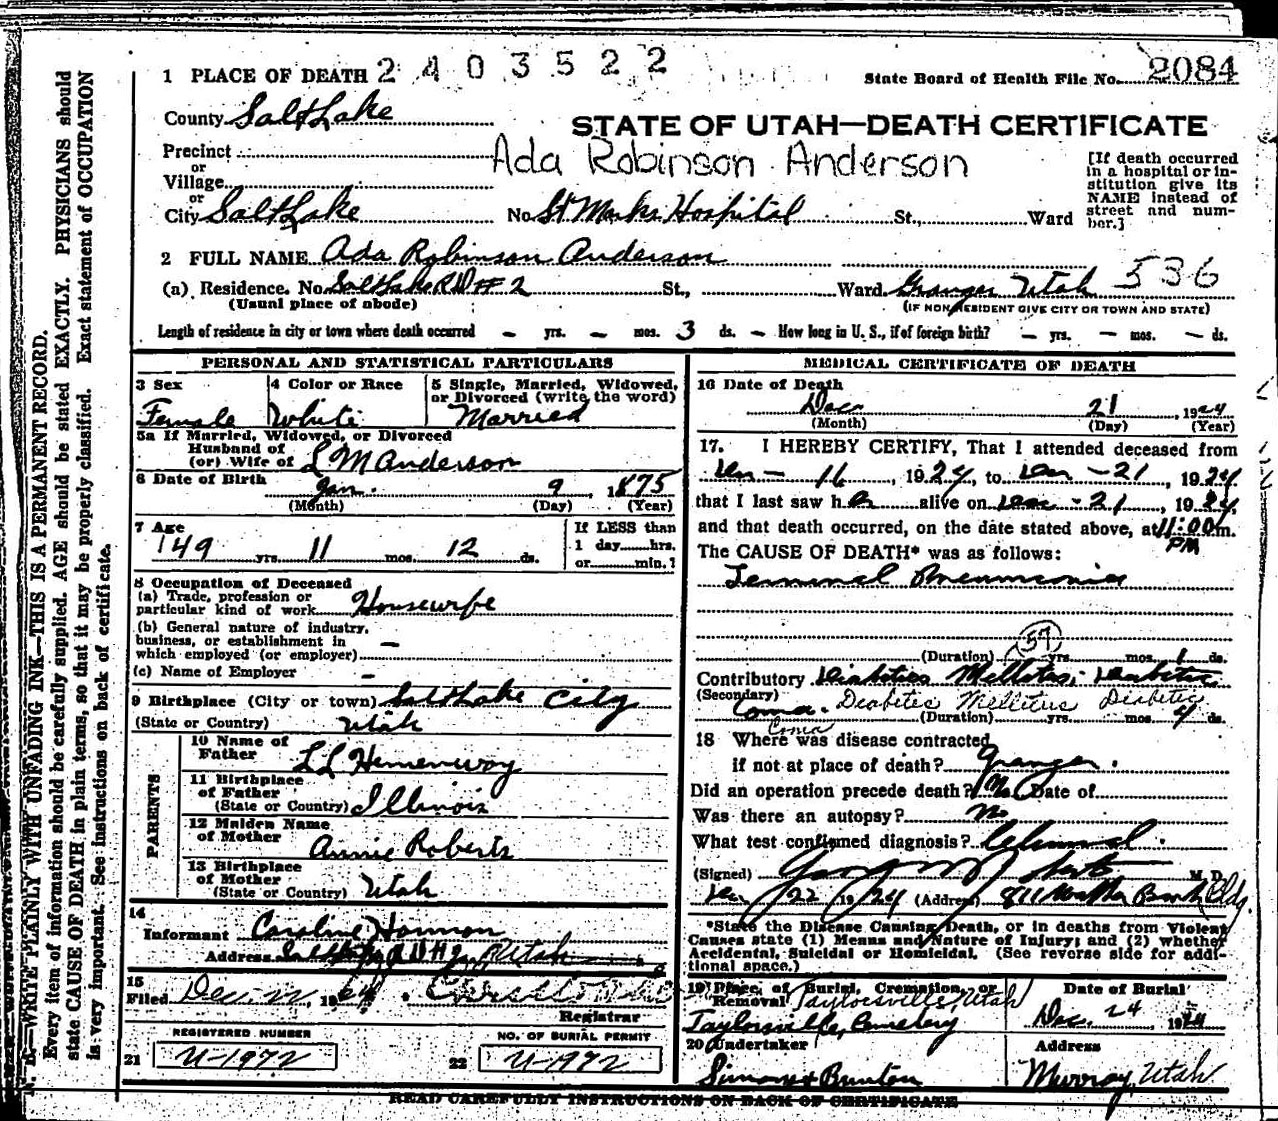 1 PLACE OF DEATH 2 4 0 3 5 2 2
State Board of Health File No. 2084
County Salt Lake
STATE OF UTAH—DEATH CERTIFICATE
Precinct
or
Village
or
Ada Robinson Anderson
[If death occurred in a hospital or in-
stitution give its
NAME instead of
street and num-
ber.]
City Salt Lake No. St Marks Hospital St., Ward
2 FULL NAME Ada Robinson Anderson
536
(a) Residence. No. Salt Lake RD # 2 St., Ward. Granger Utah
(Usual place of abode) (IF NON RESIDENT GIVE CITY OR TOWN AND STATE)
Length of residence in city or town where death occurred – yrs. – mos. 3 ds. – How long in U. S., if of foreign birth? – yrs. – mos. – ds.
PERSONAL AND STATISTICAL PARTICULARS
3 Sex 4 Color or Race 5 Single, Married, Widowed,
or Divorced (write the word)
Female White Married
5a If Married, Widowed, or Divorced
Husband of
(or) Wife of L M Anderson
6 Date of Birth Jan. 9, 1875
(Month) (Day) (Year)
7 Age
49 yrs. 11 mos. 12 ds.
If LESS than
1 day......hrs.
or......min.?
8 Occupation of Deceased
(a) Trade, profession or
particular kind of work Housewife
(b) General nature of industry,
business, or establishment in
which employed (or employer) –
(c) Name of Employer –
9 Birthplace (City or town) Salt Lake City
(State or Country) Utah
PARENTS
10 Name of
Father LL Hemenway
11 Birthplace
of Father
(State or Country) Illinois
12 Maiden Name
of Mother Annie Roberts
13 Birthplace
of Mother
(State or Country) Utah
14
Informant Caroline Harmon
Address Utah
15
Filed Dec. 1924
Registrar
REGISTERED NUMBER
21 U-1972
NO. OF BURIAL PERMIT
22 U-1972
MEDICAL CERTIFICATE OF DEATH
16 Date of Death
Dec 21, 1924
(Month) (Day) (Year)
17. I HEREBY CERTIFY, That I attended deceased from
Dec – 16, 1924, to Dec – 21, 1924
that I last saw her alive on Dec - 21, 1924,
and that death occurred, on the date stated above, at 11:00 m.
PM
The CAUSE OF DEATH* was as follows:
Terminal Pneumonia
57
(Duration) yrs. mos. 1 ds.
Contributory Diabetes Mellitus, Diabetic
(Secondary) Coma. Diabetes Mellitus Diabetic
Coma (Duration) yrs. mos. 4 ds.
18 Where was disease contracted
if not at place of death? Granger.
Did an operation precede death? No Date of
Was there an autopsy? No
What test confirmed diagnosis? Clinical.
(Signed) M. D.
Dec 22 1924 (Address) 811 Walker Bank Bldg.
*State the Disease Causing Death, or in deaths from Violent
Causes state (1) Means and Nature of Injury; and (2) whether
Accidental, Suicidal or Homicidal. (See reverse side for addi-
tional space.)
19 Place of Burial, Cremation, or
Removal Taylorsville, Utah
Taylorsville, Cemetery
Date of Burial
Dec. 24, 1924
20 Undertaker
Simon & Bunton
Address
Murray, Utah
READ CAREFULLY INSTRUCTIONS ON BACK OF CERTIFICATE
N. B.—WRITE PLAINLY WITH UNFADING INK—THIS IS A PERMANENT RECORD.
Every item of information should be carefully supplied. AGE should be stated EXACTLY. PHYSICIANS should
state CAUSE OF DEATH in plain terms, so that it may be properly classified. Exact statement of OCCUPATION
is very important. See instructions on back of certificate.